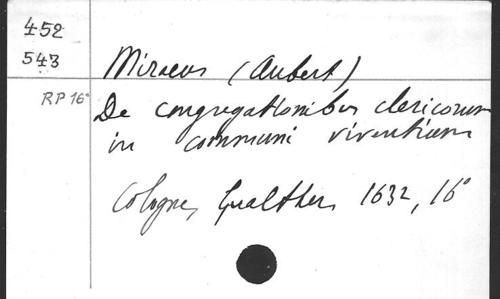 452
543
Miraeus (Aubert)
RP 16°
De congregationibus clericorum
in communi viventium
Cologne, Gualther, 1632, 16°